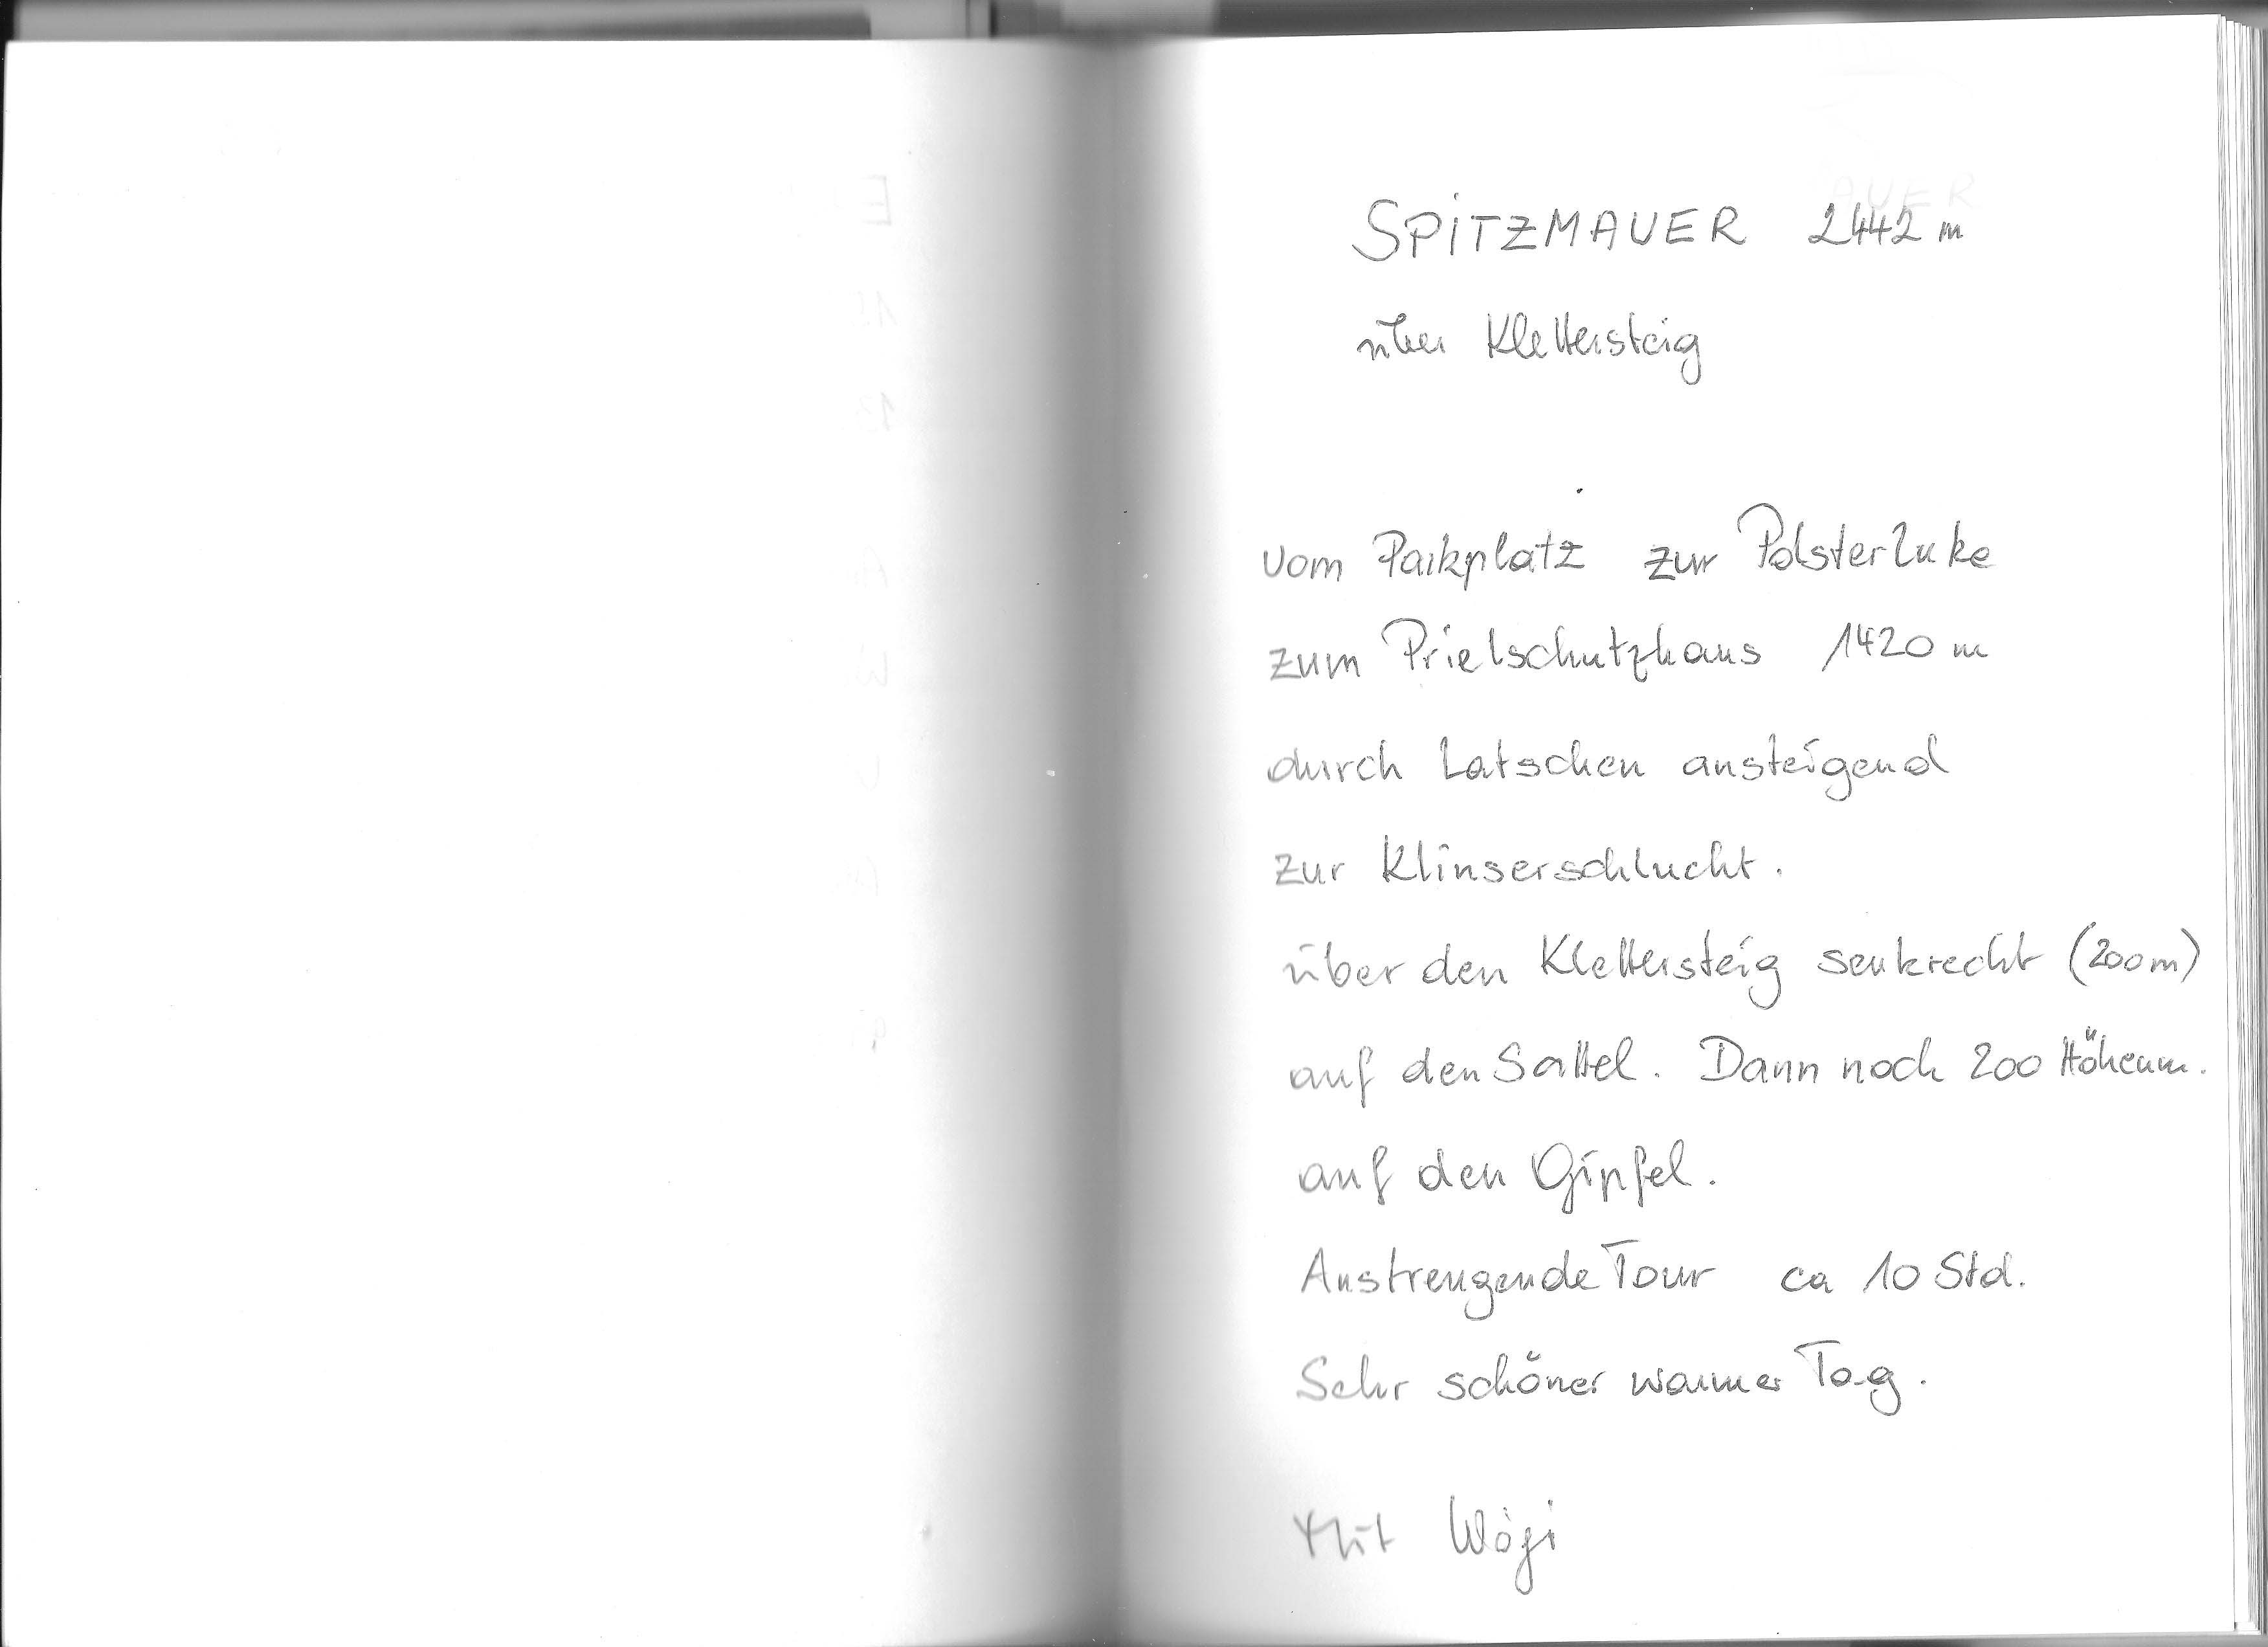 SPITZMAUER 2442 m
über Klettersteig
vom Parkplatz zur Polsterluke
zum Prielschutzhaus 1420 m
durch Latschen ansteigend
zur Klinserschlucht.
über den Klettersteig senkrecht (200m)
auf den Sattel. Dann noch 200 Höhenm.
auf den Gipfel.
Anstrengende Tour ca 10 Std.
Sehr schöner warmer Tag.
Mit